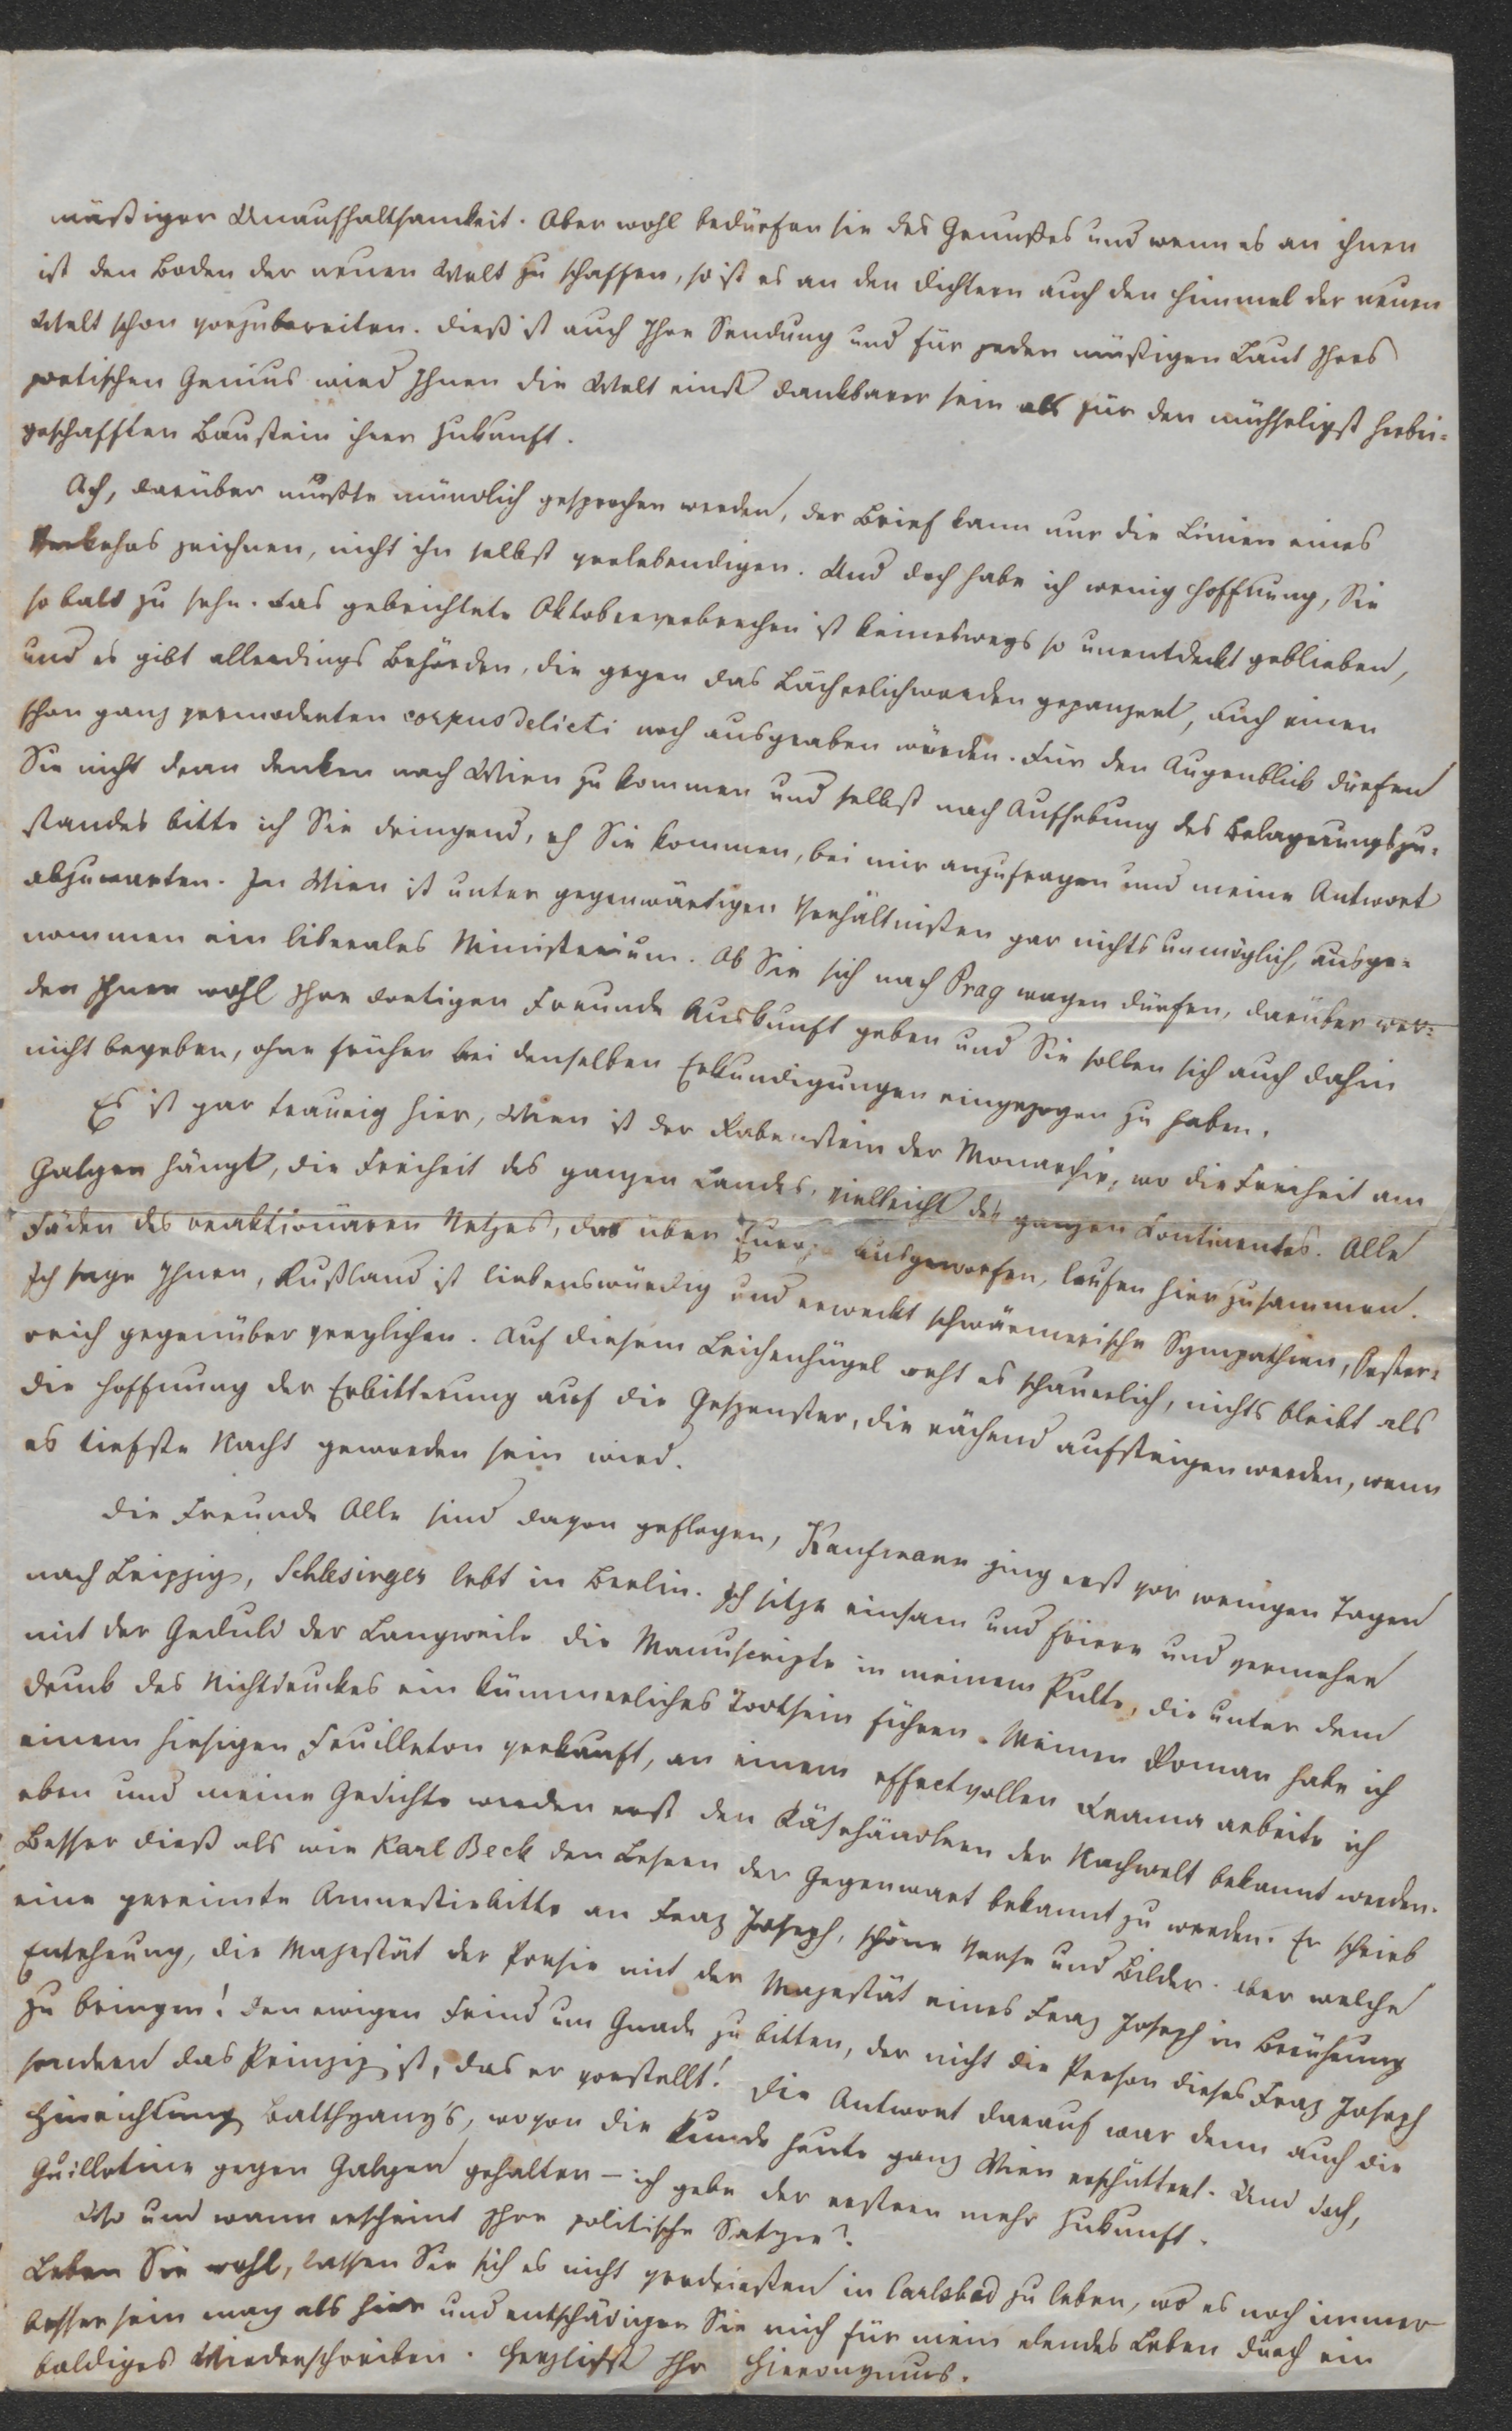 mäßiger Unaufhaltsamkeit. Aber wohl bedürfen sie des Genußes und wenn es an ihnen
ist den Boden der neuen Welt zu schaffen, so ist es an den Dichtern auch den Himmel der neuen
Welt schon vorzubereiten. Dieß ist auch Ihre Sendung und für jeden müßigen Laut Ihres
poetischen Genius wird Ihnen die Welt einst dankbarer sein als für den mühseligst herbei-
geschafften Baustein ihrer Zukunft.
Ach, darüber müßte mündlich gesprochen werden, der Brief kann nur die Linien eines
Verkehrs zeichnen, nicht ihn selbst verlebendigen. Und doch habe ich wenig Hoffnung, Sie
so bald zu sehn. Das gebeichtete Oktoberverbrechen ist keineswegs so unentdeckt geblieben,
und es gibt allerdings Behörden, die gegen das Lächerlichwerden gepanzert, auch einen
schon ganz vermoderten corpus delicti noch ausgraben würden. Für den Augenblick dürfen
Sie nicht dran denken nach Wien zu kommen und selbst nach Aufhebung des Belagerungszu-
standes bitte ich Sie dringend, eh Sie kommen, bei mir anzufragen und meine Antwort
abzuwarten. In Wien ist unter gegenwärtigen Verhältnißen gar nichts unmöglich, ausge-
nommen ein liberales Ministerium. Ob Sie sich nach Prag wagen dürfen, darüber wer-
den Ihnen wohl Ihre dortigen Freunde Auskunft geben und Sie sollen sich auch dahin
nicht begeben, ohne früher bei denselben Erkundigungen eingezogen zu haben.
Es ist gar traurig hier, Wien ist der Rabenstein der Monarchie, wo die Freiheit am
Galgen hängt, die Freiheit des ganzen Landes, vielleicht des ganzen Continentes. Alle
Fäden des reaktionären Netzes, das über Europa ausgeworfen, laufen hier zusammen.
Ich sage Ihnen, Rußland ist liebenswürdig und erweckt schwärmerische Sympathien, Oester-
reich gegenüber verglichen. Auf diesem Leichenhügel weht es schauerlich, nichts bleibt als
die Hoffnung der Erbitterung auf die Gespenster, die rächend aufsteigen werden, wenn
es tiefste Nacht geworden sein wird.
Die Freunde Alle sind davon geflogen, Kaufmann ging erst vor wenigen Tagen
nach Leipzig, Schlesinger lebt in Berlin. Ich sitze einsam und friere und vermehre
mit der Geduld der Langweile die Manuscripte in meinem Pulte, die unter dem
Druck des Nichtdruckes ein kümmerliches Todtsein führen. Meinen Roman habe ich
einem hiesigen Feuilleton verkauft, an einem effectvollen Drama arbeite ich
eben und meine Gedichte werden erst den Käsehändlern der Nachwelt bekannt werden.
Besser dieß als wie Karl Beck den Lesern der Gegenwart bekannt zu werden. Er schrieb
eine gereimte Amnestiebitte an Franz Joseph, schöne Verse und Bilder. Aber welche
Entehrung, die Majestät der Poesie mit der Majestät eines Franz Joseph in Berührung
zu bringen! Den ewigen Feind um Gnade zu bitten, der nicht die Person dieses Franz Joseph
sondern das Prinzip ist, das er vorstellt! Die Antwort darauf war denn auch die
Hinrichtung Batthyany's, wovon die Kunde heute ganz Wien erschüttert. Und doch,
Guillotine gegen Galgen gehalten – ich gebe der ersteren mehr Zukunft.
Wo und wann erscheint Ihre politische Satyre?
Leben Sie wohl, lassen Sie sich es nicht verdrießen in Carlsbad zu leben, wo es noch immer
besser sein mag als hier und entschädigen Sie mich für mein elendes Leben durch ein
baldiges Wiederschreiben. Herzlichst Ihr Hieronymus.